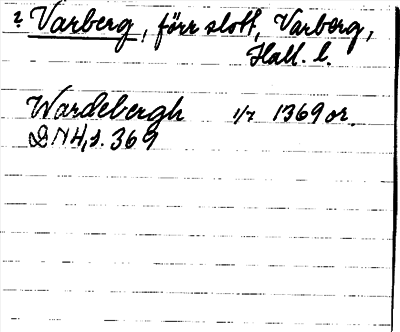 ? Varberg, förr slott, Varberg,
Hall. l.
Wardebergh 1/7 1369 or.
DN 4, s. 369